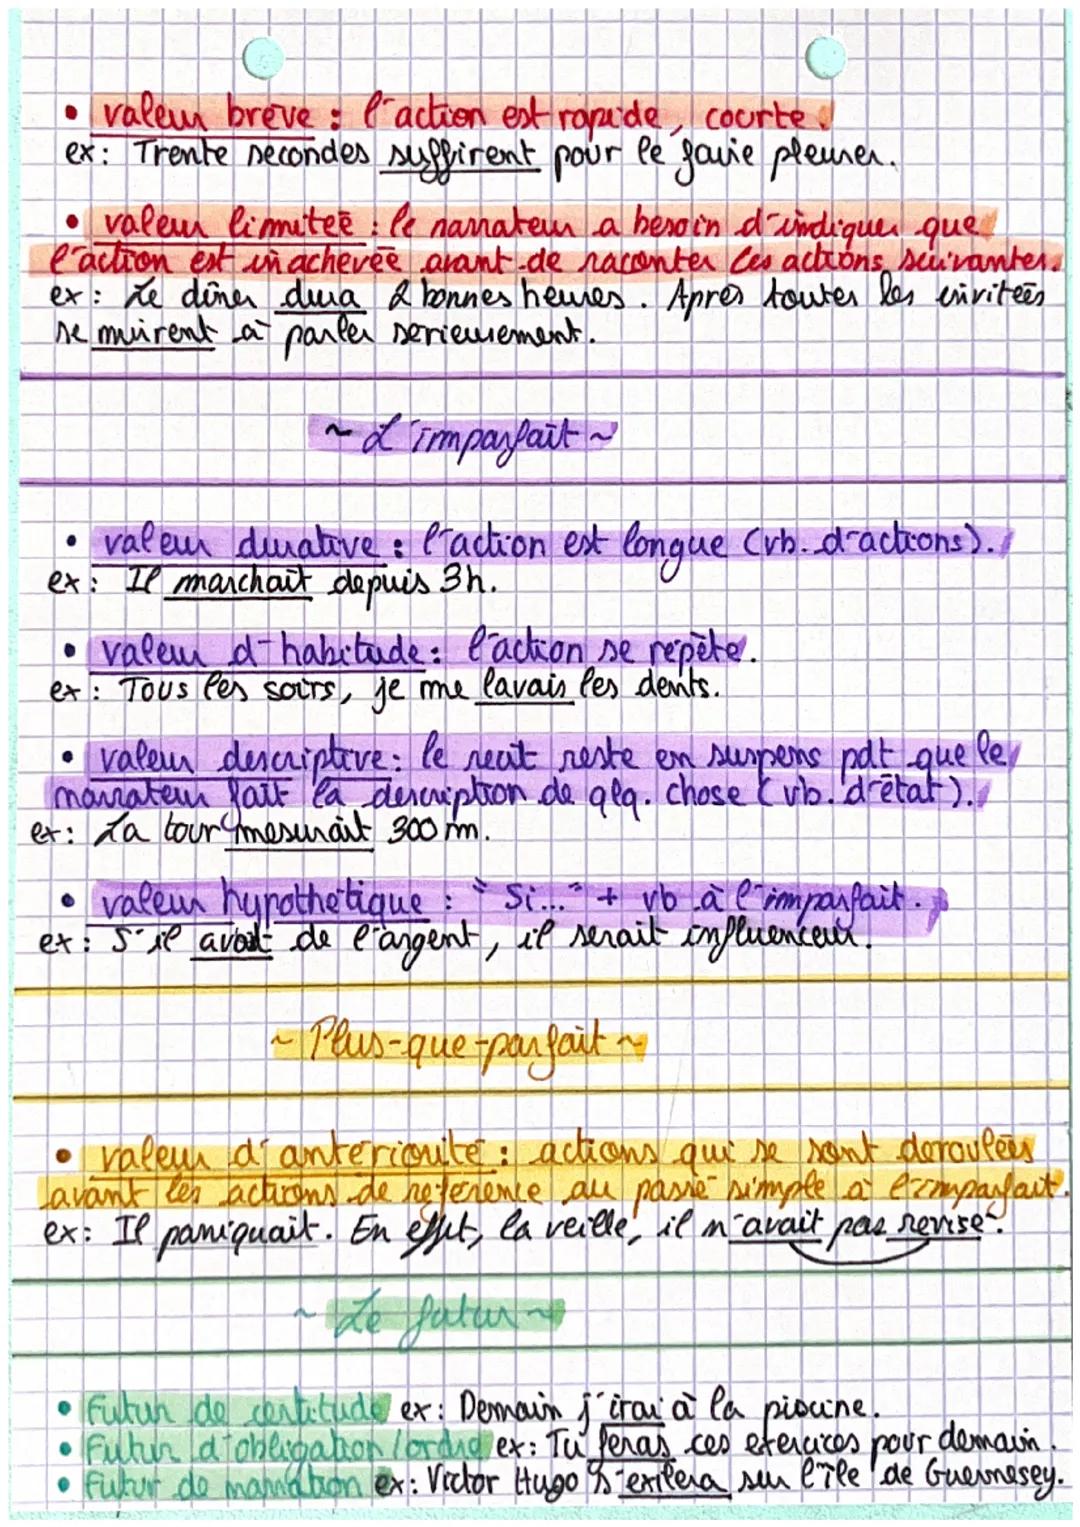 • valeur brève : l'action est rapide, courte.
ex : Trente secondes suffirent pour le faire pleurer.
• valeur limitée : le narrateur a besoin d'indiquer que
l'action est inachevée avant de raconter les actions suivantes.
ex : Le dîner dura 2 bonnes heures. Après toutes les invitées
se mirent à parler serieusement.
~ L'imparfait ~
• valeur durative : l'action est longue (vb. d'actions).
ex : Il marchait depuis 3h.
• valeur d'habitude : l'action se répète.
ex : Tous les soirs, je me lavais les dents.
• valeur descriptive : le recit reste en suspens pdt que le
narrateur fait la description de qlq. chose (vb. d'état).
ex : La tour mesurait 300 m.
• valeur hypothétique : "Si..." + vb à l'imparfait.
ex : S'il avait de l'argent, il serait influenceur.
~ Plus-que-parfait ~
• valeur d'antériorité : actions qui se sont deroulées
avant les actions de référence au passé simple à l'imparfait.
ex : Il paniquait. En effet, la veille, il n'avait pas revisé.
~ Le futur ~
• Futur de certitude ex : Demain j'irai à la piscine.
• Futur d'obligation/ordre ex : Tu feras ces exercices pour demain.
• Futur de narration ex : Victor Hugo s'exilera sur l'île de Guernesey.